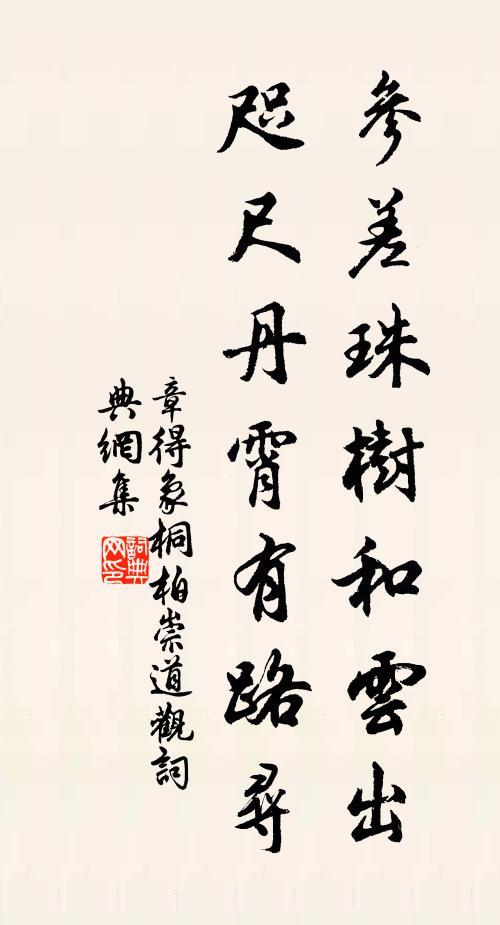 參差珠樹和雲出
咫尺丹霄有路尋
章得象桐柏崇道觀詞
典網集
詞典網印